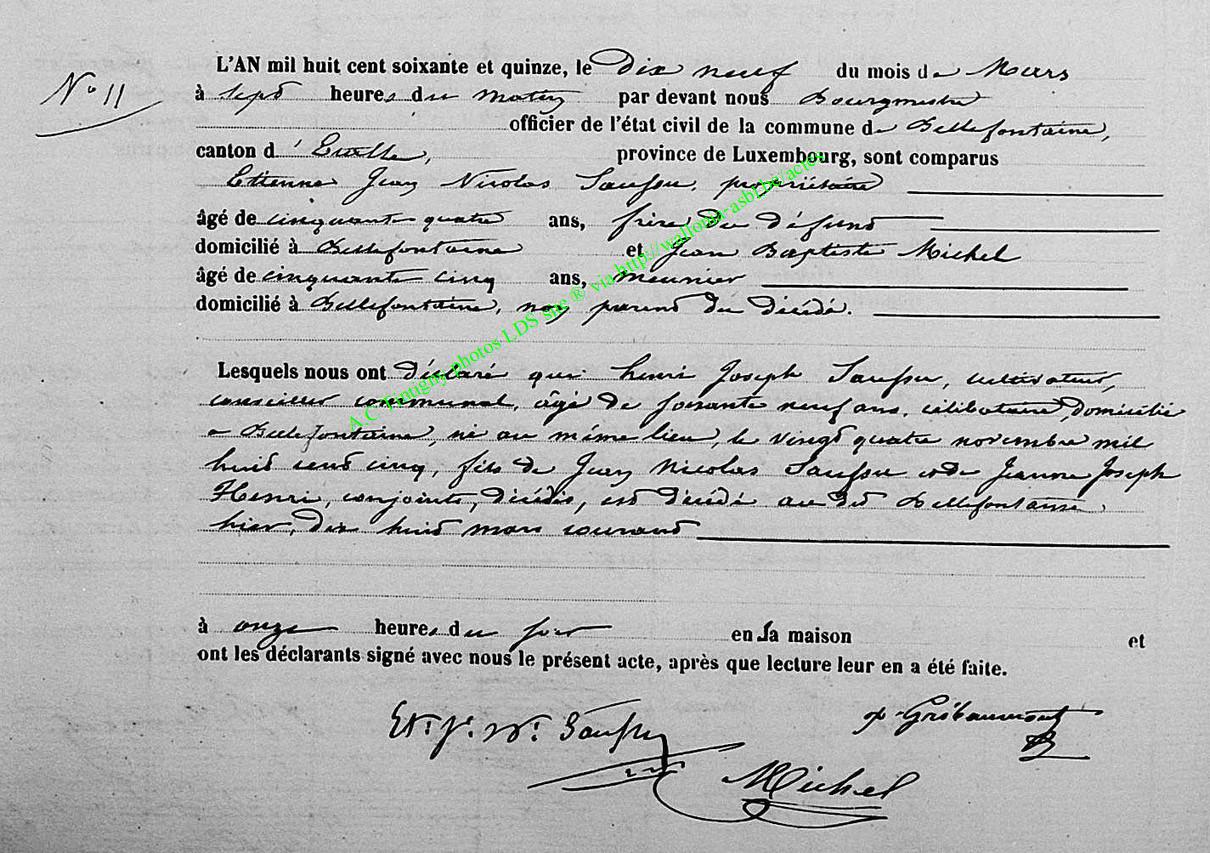 N° 11
L'AN mil huit cent soixante et quinze, le dix neuf du mois de Mars
à sept heures du matin par devant nous Bourgmestre
officier de l'état civil de la commune de Bellefontaine,
canton d'Etalle, province de Luxembourg, sont comparus
Etienne Jean Nicolas Saussu, propriétaire
âgé de cinquante quatre ans, frère du défunt
domicilié à Bellefontaine et Jean Baptiste Michel
âgé de cinquante cinq ans, meunier
domicilié à Bellefontaine, non parent du décédé.
Lesquels nous ont déclaré que henri Joseph Saussu, cultivateur,
conseiller communal, âgé de soixante neuf ans, célibataire, domicilié
a Bellefontaine, né au même lieu, le vingt quatre novembre mil
huit cent cinq, fils de Jean Nicolas Saussu et de Jeanne Joseph
Henri, conjoints, décédés, est décédé au dit Bellefontaine,
hier, dix huit mars courant
à onze heures du soir en sa maison et
ont les déclarants signé avec nous le présent acte, après que lecture leur en a été faite.
Et. J. N. Saussu
Gribaumont
Michel
A.C Tintigny photos LDS slc ® via http://wallonia-asbl.be/actes